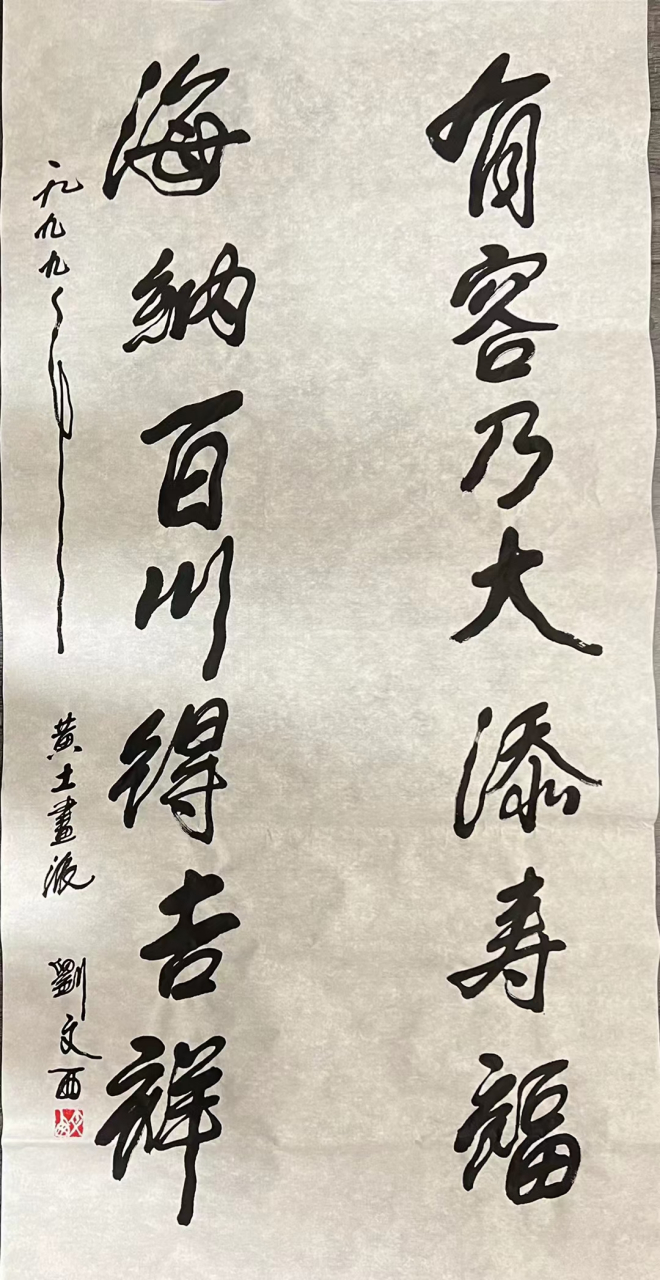 有容乃大添寿福
海纳百川得吉祥
一九九九年
黄土畫派 劉文西